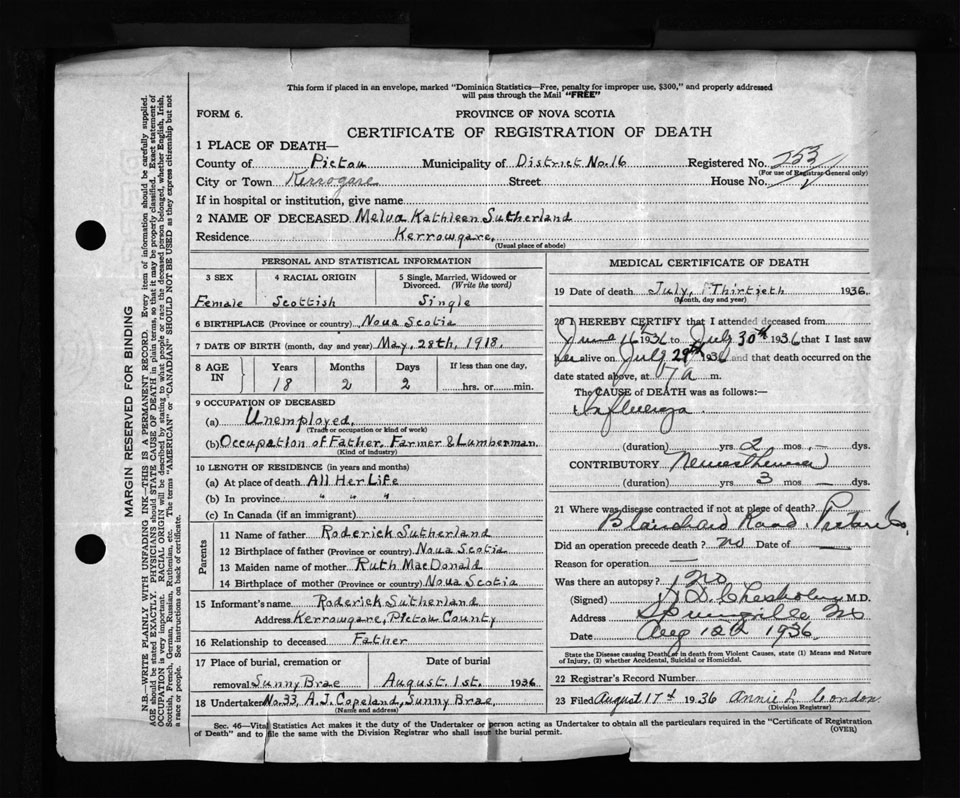 This form if placed in an envelope, marked "Dominion Statistics—Free, penalty for improper use, $300," and properly addressed
will pass through the Mail "FREE"
FORM 6.
PROVINCE OF NOVA SCOTIA
CERTIFICATE OF REGISTRATION OF DEATH
1 PLACE OF DEATH—
County of Pictou Municipality of District No. 16 Registered No. 253
(For use of Registrar General only)
City or Town Kerrogare Street House No.
If in hospital or institution, give name
2 NAME OF DECEASED Melva Kathleen Sutherland
Residence Kerrowgare,
(Usual place of abode)
PERSONAL AND STATISTICAL INFORMATION
3 SEX 4 RACIAL ORIGIN 5 Single, Married, Widowed or
Divorced. (Write the word)
Female Scottish Single
6 BIRTHPLACE (Province or country) Nova Scotia
7 DATE OF BIRTH (month, day and year) May, 28th, 1918.
8 AGE IN Years Months Days If less than one day,
18 2 2 hrs. or min.
9 OCCUPATION OF DECEASED
(a) Unemployed,
(Trade or occupation or kind of work)
(b) Occupation of Father, Farmer & Lumberman.
(Kind of industry)
10 LENGTH OF RESIDENCE (in years and months)
(a) At place of death All Her Life
(b) In province " " "
(c) In Canada (if an immigrant)
Parents
11 Name of father Roderick Sutherland
12 Birthplace of father (Province or country) Nova Scotia
13 Maiden name of mother Ruth MacDonald
14 Birthplace of mother (Province or country) Nova Scotia
15 Informant's name Roderick Sutherland
Address Kerrowgare, Pictou County
16 Relationship to deceased Father
17 Place of burial, cremation or Date of burial
removal Sunny Brae August. 1st. 1936
18 Undertaker No. 33, A.J. Copeland, Sunny Brae,
(Name and address)
MEDICAL CERTIFICATE OF DEATH
19 Date of death July, Thirtieth 1936.
(Month, day and year)
20 I HEREBY CERTIFY that I attended deceased from
June 16 1936 to July 30th 1936 that I last saw
her alive on July 29th 1936 and that death occurred on the
date stated above, at 7 a m.
The CAUSE OF DEATH was as follows:
Influenza
(duration) yrs. 2 mos. — dys.
CONTRIBUTORY
(duration) yrs. 3 mos. — dys.
21 Where was disease contracted if not at place of death?
Blanchard Road. Pictou Co
Did an operation precede death? no Date of
Reason for operation
Was there an autopsy? No
(Signed) Chisholm M.D.
Address Springville NS
Date Aug 12th 1936
State the Disease causing Death, or in death from Violent Causes, state (1) Means and Nature
of Injury, (2) whether Accidental, Suicidal or Homicidal.
22 Registrar's Record Number
23 Filed August 17th 1936 Annie L. Condon
(Division Registrar)
Sec. 46—Vital Statistics Act makes it the duty of the Undertaker or person acting as Undertaker to obtain all the particulars required in the "Certificate of Registration
of Death" and to file the same with the Division Registrar who shall issue the burial permit.
(OVER)
MARGIN RESERVED FOR BINDING
N.B.—WRITE PLAINLY WITH UNFADING INK—THIS IS A PERMANENT RECORD. Every item of information should be carefully supplied.
AGE should be stated EXACTLY. PHYSICIANS should STATE CAUSE OF DEATH in plain terms, so that it may be properly classified. Exact statement of
OCCUPATION is very important. RACIAL ORIGIN will be described by stating to what people or race the deceased person belonged, whether English, Irish,
Scottish, French, German, Russian, Ruthenian, etc. The terms "AMERICAN" or "CANADIAN" SHOULD NOT BE USED as they express citizenship but not
a race or people. See instructions on back of certificate.